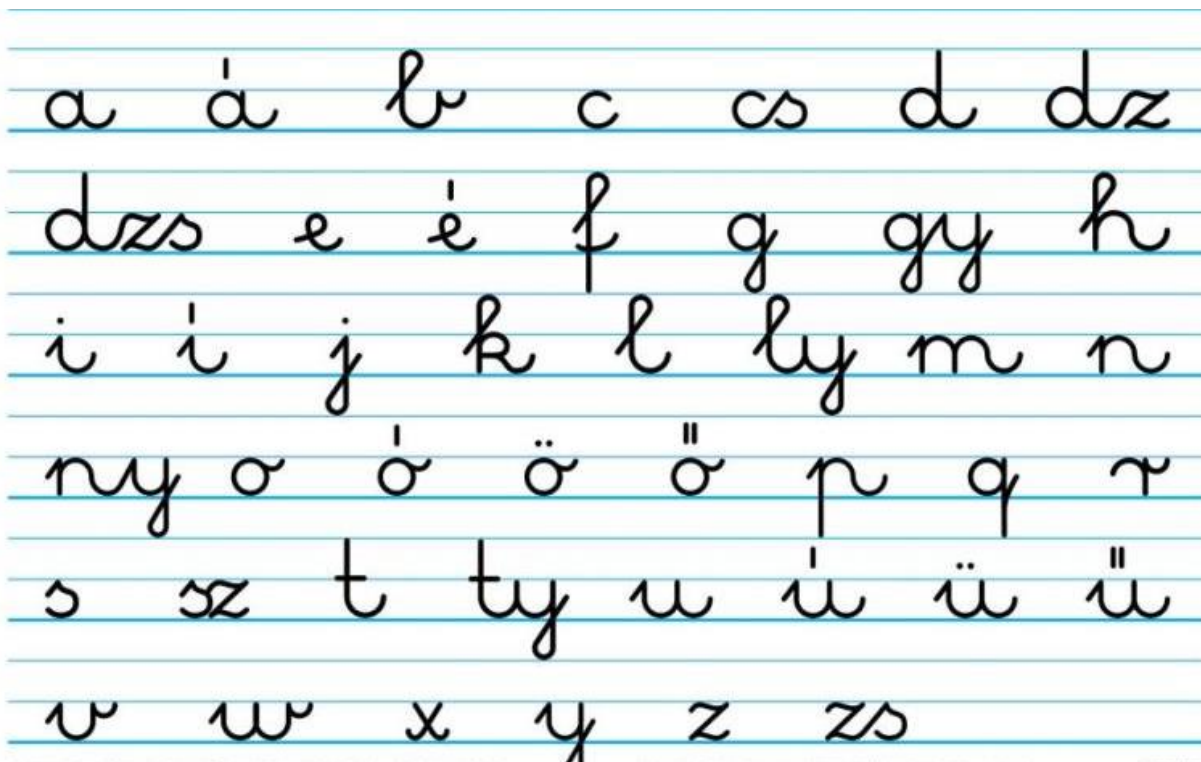 a á b c cs d dz
dzs e é f g gy h
i í j k l ly m n
ny o ó ö ő p q r
s sz t ty u ú ü ű
v w x y z zs